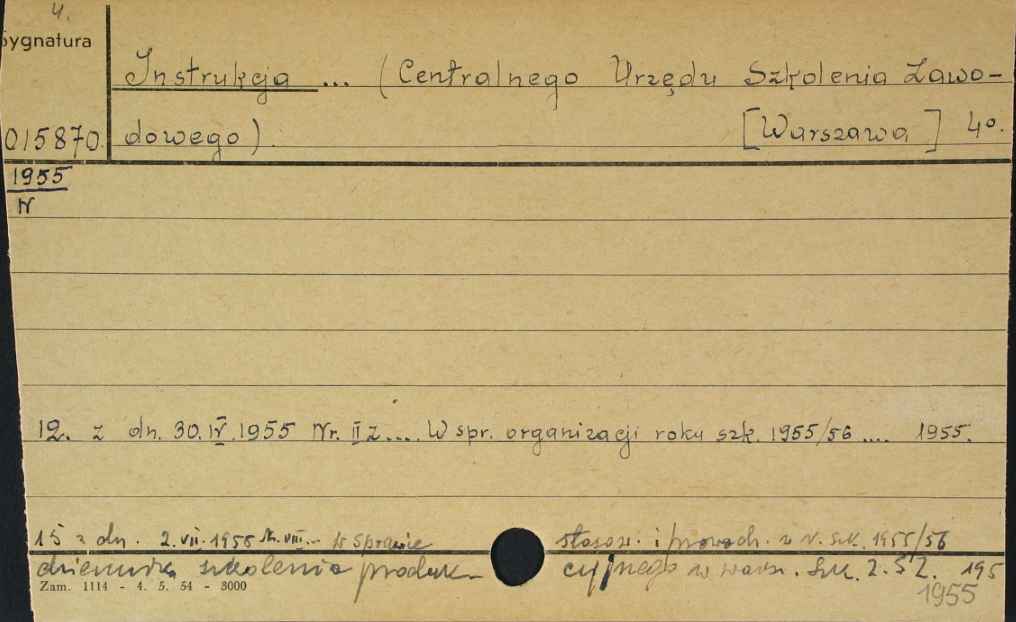 4.
Sygnatura
Instrukcja ... (Centralnego Urzędu Szkolenia Zawo-
015870 dowego). [Warszawa] 4o.
1955
N
12. z dn. 30.IV.1955 Nr. II Z.... W spr. organizacji roku szk. 1955/56 .... 1955.
15 z dn. 2.VII.1955 Nr. VIII... W sprawie stosow. i prowadz. w r. szk. 1955/56
dziennika szkolenia produk- cyjnego w warszt. szk. Z.S.Z. 195
1955
Zam. 1114 - 4. 5. 54 - 3000